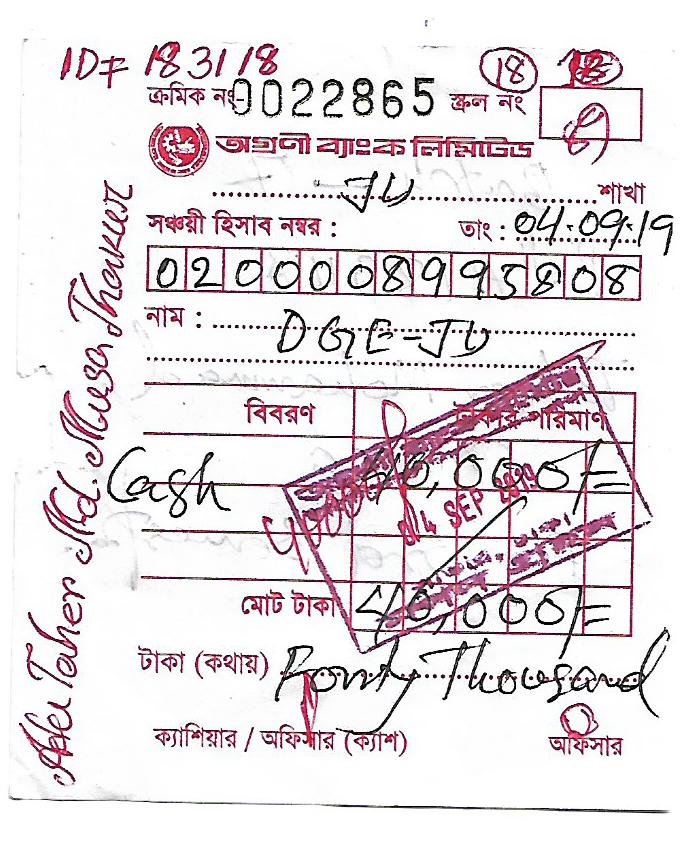 ID# 183118
18
ক্রমিক নং 0022865 স্ক্রল নং
অগ্রণী ব্যাংক লিমিটেড
JU শাখা
সঞ্চয়ী হিসাব নম্বর : তাং : 04.09.19
0200008995808
নাম : DGE-JU
বিবরণ টাকার পরিমাণ
Cash 40,000/=
40000/=
04 SEP 2019
মোট টাকা 40,000/=
টাকা (কথায়) Forty Thousand
ক্যাশিয়ার / অফিসার (ক্যাশ) অফিসার
Abu Taher Md. Musa Thakur